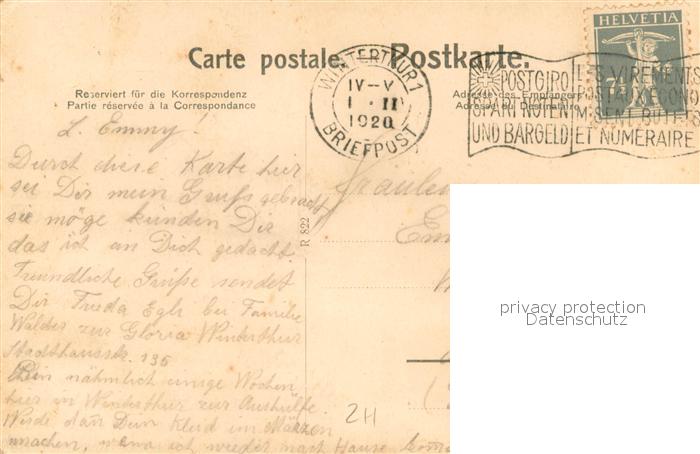 Carte postale. Postkarte.
HELVETIA
7½
Reserviert für die Korrespondenz
Partie réservée à la Correspondance
Adresse des Empfängers
Adresse du Destinataire
WINTERTHUR 1
IV-V
1. II
1920
BRIEFPOST
POSTGIRO
SPART NOTEN
UND BARGELD
LES VIREMENTS
POSTAUX ÉCONO
MISENT BILLETS
ET NUMÉRAIRE
L. Emmy!
Durch diese Karte hier
sei Dir mein Gruss gebracht
sie möge künden Dir
das ich an Dich gedacht.
Freundliche Grüsse sendet
Dir Frieda Egli bei Familie
Walder zur Gloria Winterthur
Stadthausstr. 135
Bin nähmlich einige Wochen
hier in Winterthur zur Aushülfe.
Werde dan Dein Kleid im Märzen
machen, wenn ich wieder nach Hause
Fräulein
Em
R 822
ZH
privacy protection
Datenschutz